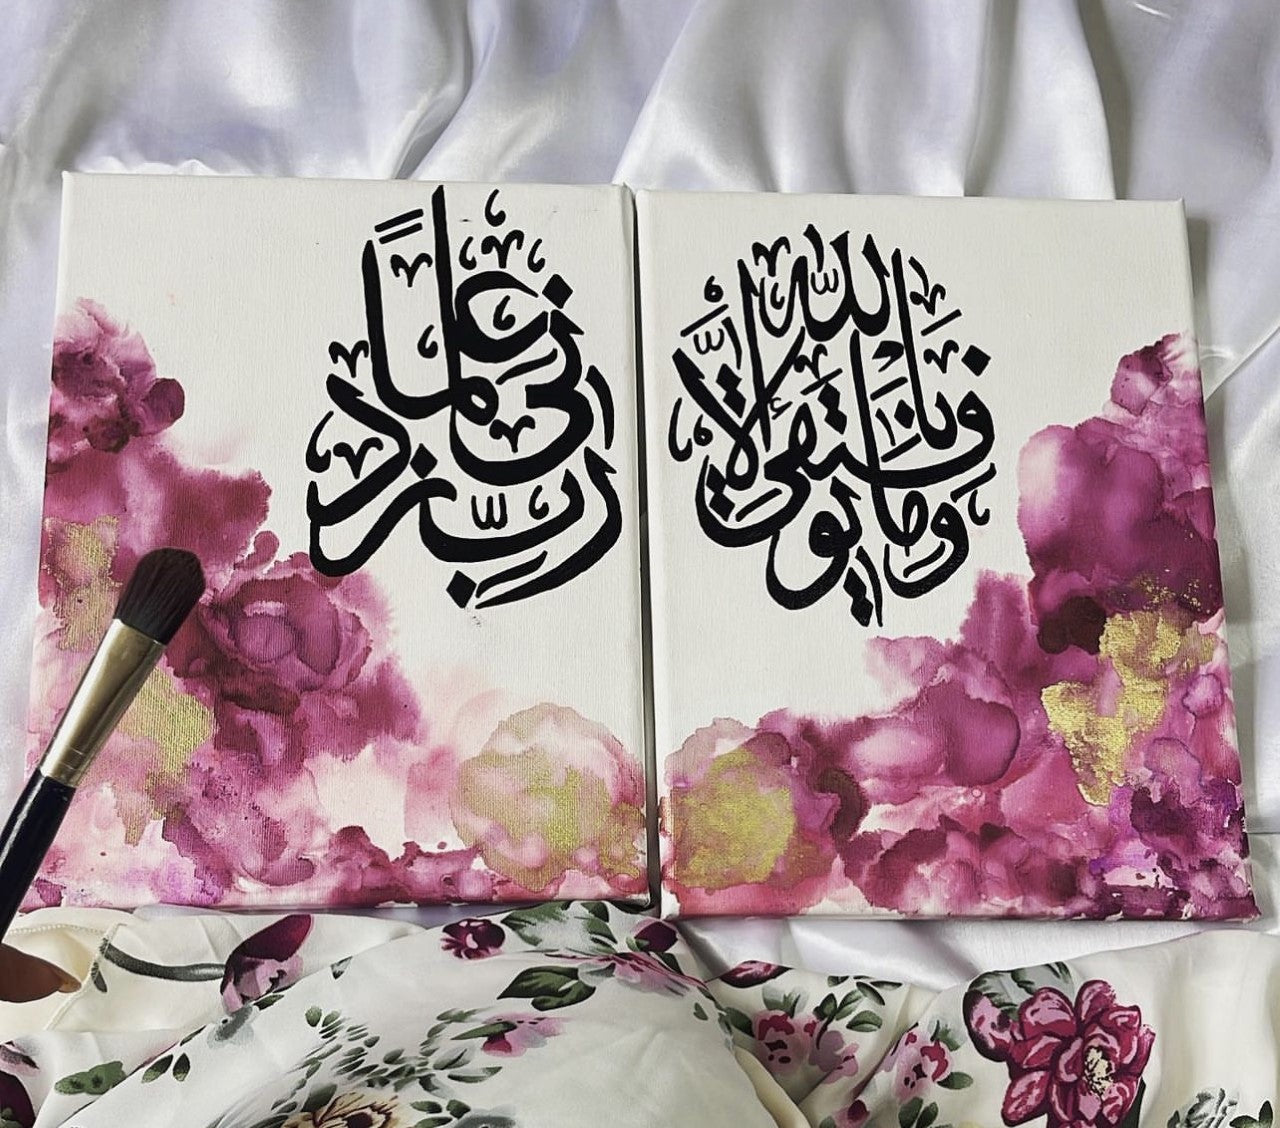 وَمَا تَوْفِيقِي إِلَّا بِاللَّهِ
رَبِّ زِدْنِي عِلْمًا